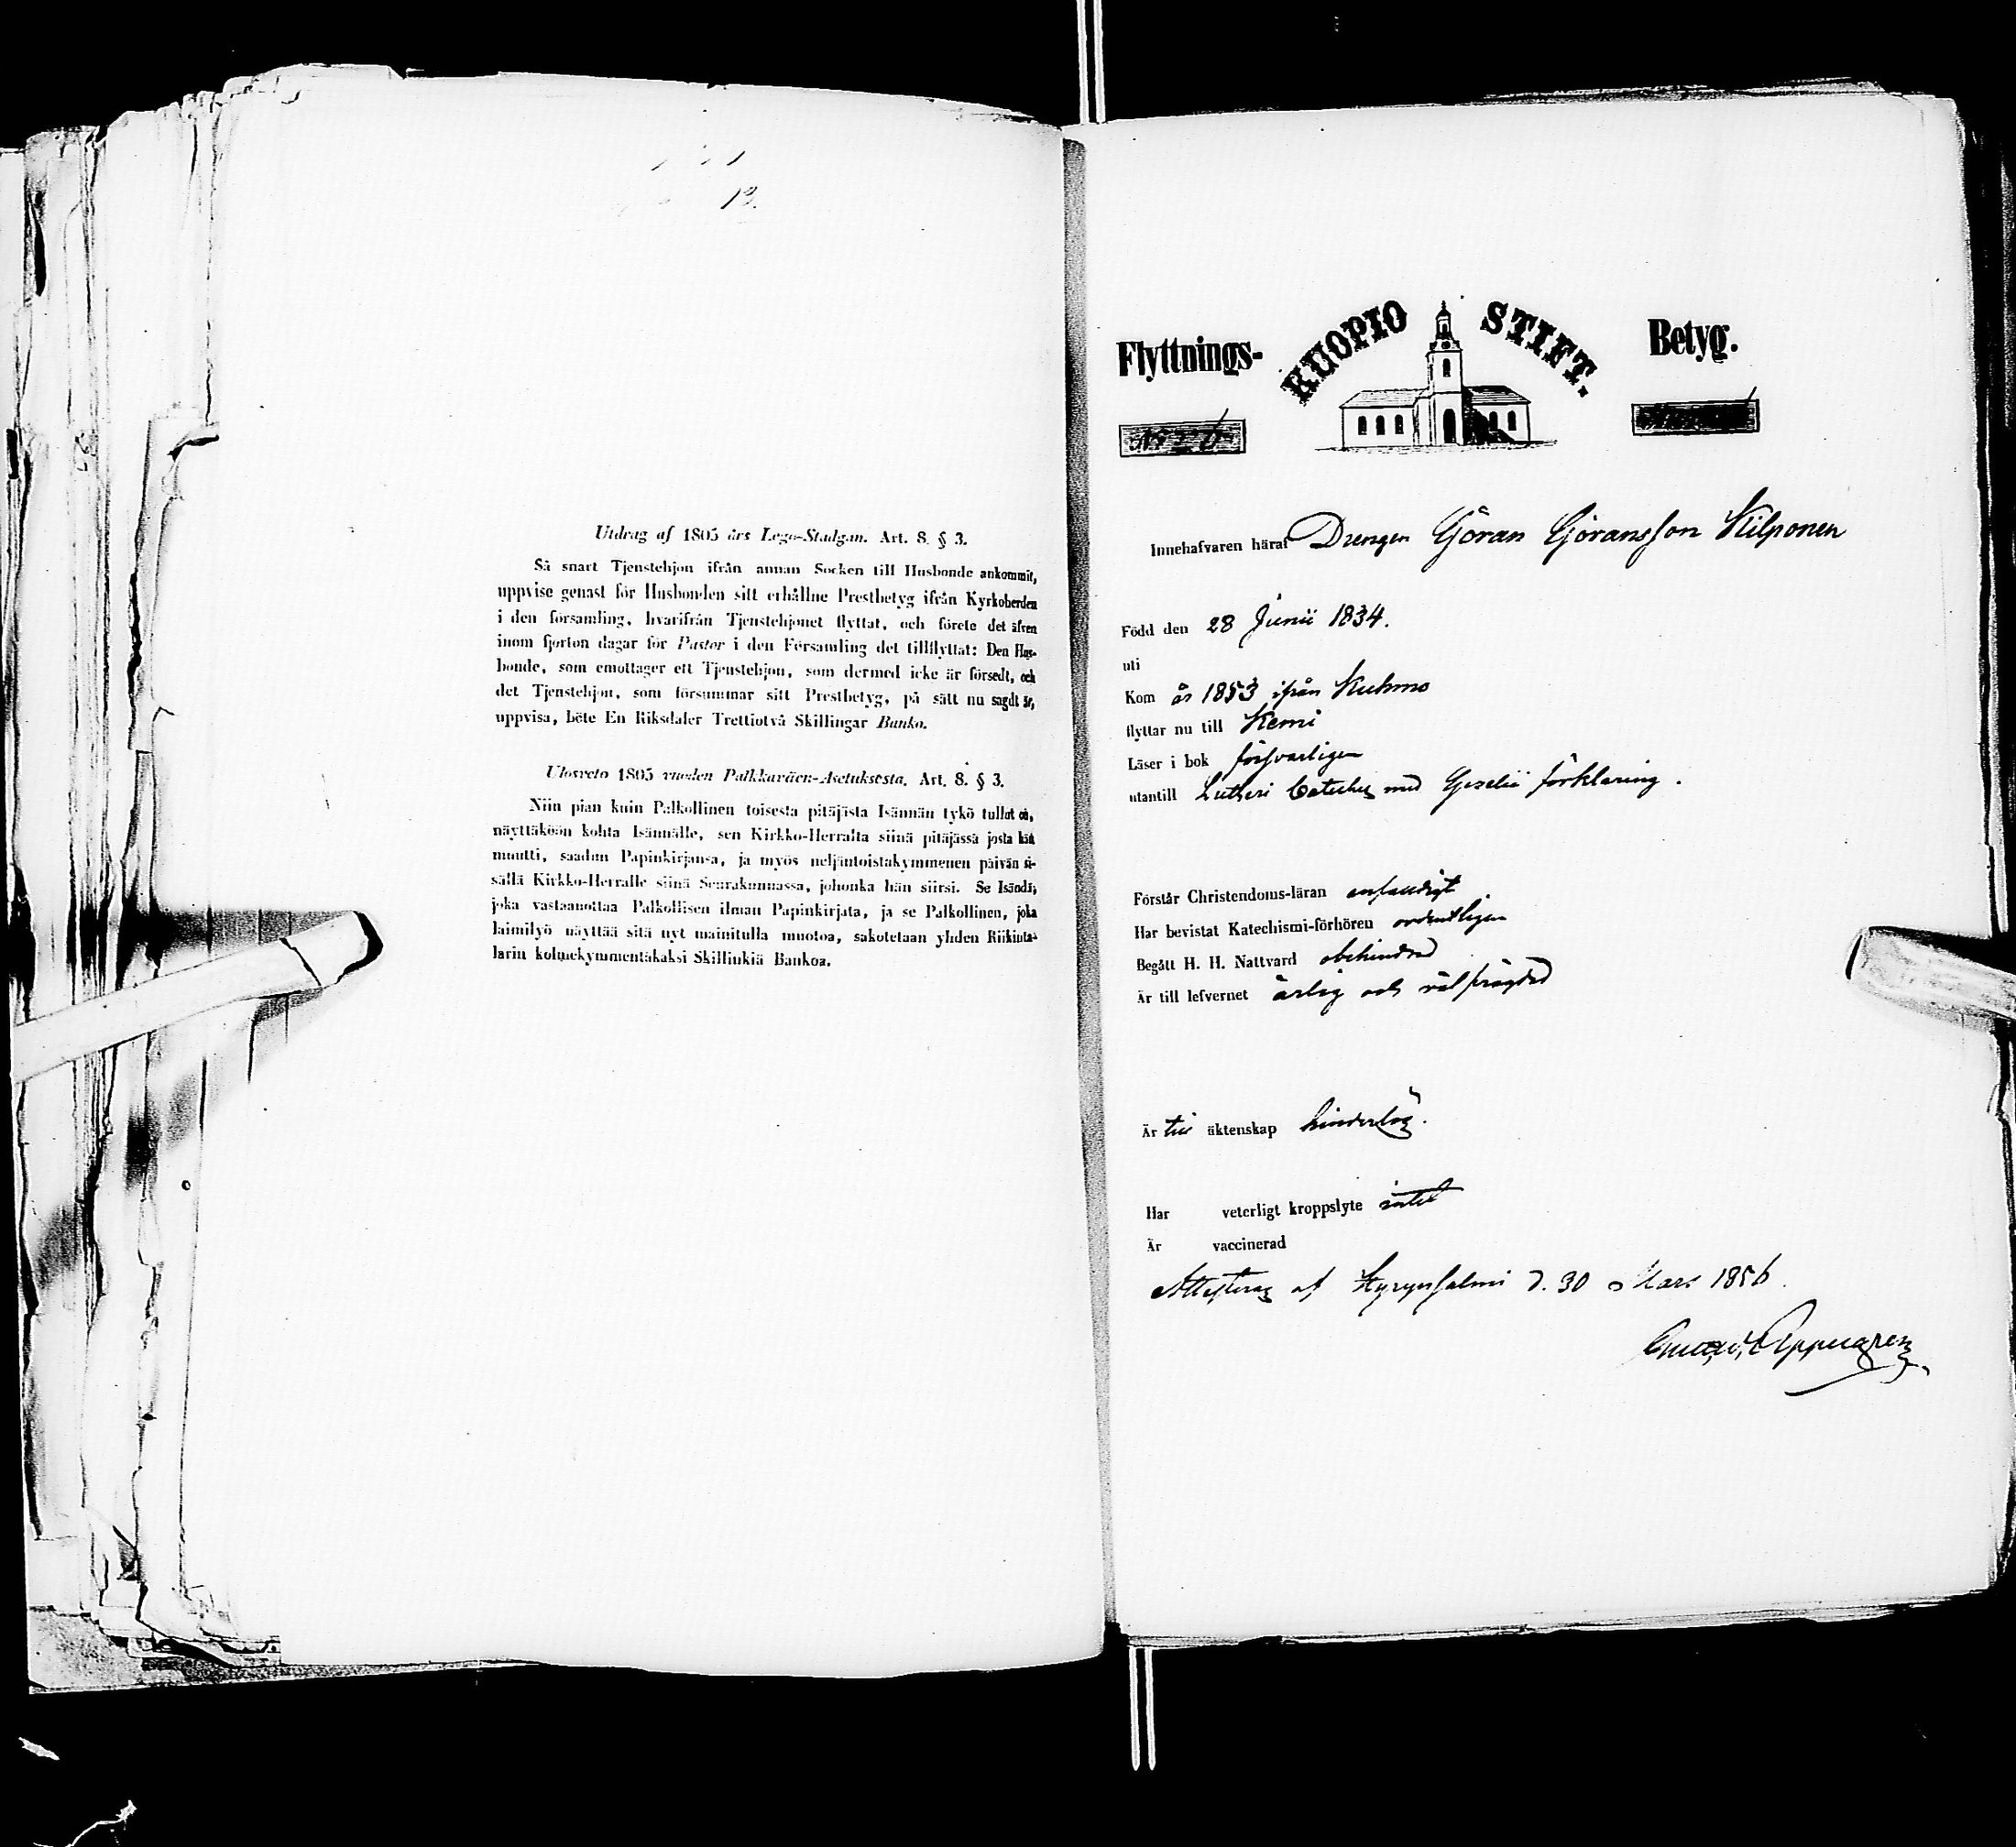 13.
Utdrag af 1805 års Lego-Stadgan. Art. 8. § 3.
Så snart Tjenstehjon ifrån annan Socken till Husbonde ankommit,
uppvise genast för Husbonden sitt erhållne Prestbetyg ifrån Kyrkoherden
i den församling, hvarifrån Tjenstehjonet flyttat, och förete det äfven
inom fjorton dagar för Pastor i den Församling det tillflyttat: Den Hus-
bonde, som emottager ett Tjenstehjon, som dermed icke är försedt, och
det Tjenstehjon, som försummar sitt Prestbetyg, på sätt nu sagdt är,
uppvisa, böte En Riksdaler Trettiotvå Skillingar Banko.
Ulosveto 1805 vuoden Palkkaväen-Asetuksesta. Art. 8. § 3.
Niin pian kuin Palkollinen toisesta pitäjästä Isännän tykö tullut on,
näyttäköön kohta Isännälle, sen Kirkko-Herralta siinä pitäjässä josta hän
muutti, saadun Papinkirjansa, ja myös neljäntoistakymmenen päivän si-
sällä Kirkko-Herralle siinä Seurakunnassa, johonka hän siirsi. Se Isäntä,
joka vastaanottaa Palkollisen ilman Papinkirjata, ja se Palkollinen, joka
laimilyö näyttää sitä nyt mainitulla muotoa, sakotetaan yhden Riikinta-
larin kolmekymmentäkaksi Skillinkiä Bankoa.
Flyttnings- KUOPIO STIFT. Betyg.
Innehafvaren häraf Drengen Göran Göransson Kilponen
Född den 28 Junii 1834.
uti
Kom år 1853 ifrån Kuhmo
flyttar nu till Kemi
Läser i bok försvarligen
utantill Lutheri Cateches med Gezelii förklaring.
Förstår Christendoms-läran anständigt
Har bevistat Katechismi-förhören ordentligen
Begått H. H. Nattvard obehindrad
Är till lefvernet ärlig och välfrägdad
Är till äktenskap hinderlös.
Har veterligt kroppslyte intet
Är vaccinerad
Attesteras af Hyrynsalmi d. 30 Mars 1856.